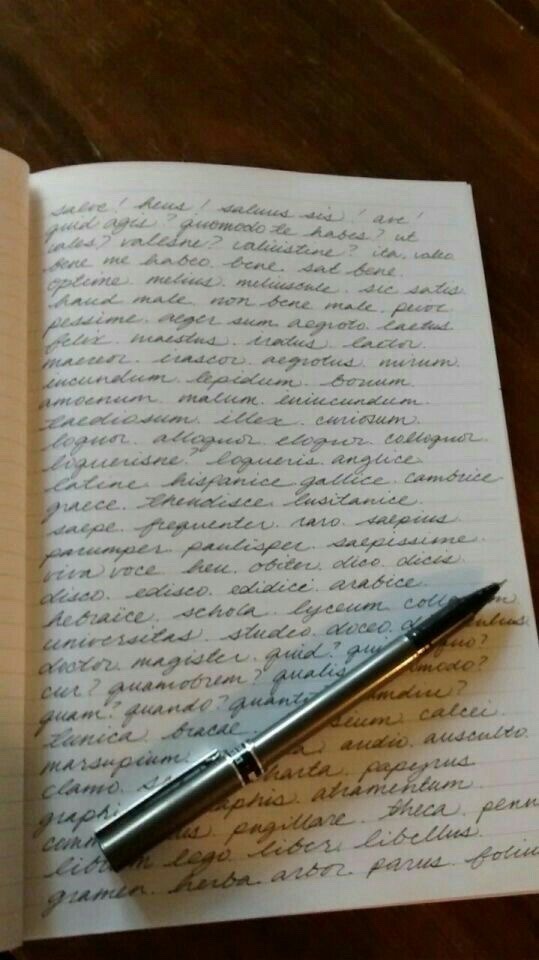 salve! heus! salvus sis! ave!
quid agis? quomodo te habes? ut
vales? valesne? valuistine? ita. valeo
bene me habeo. bene. sat bene.
optime. melius. meliuscule. sic satis
haud male. non bene. male. peior
pessime. aeger sum. aegroto. laetus
felix. maestus. iratus. laetor
maereor. irascor. aegrotus. mirum.
iucundum. lepidum. bonum.
amoenum. malum. iniucundum.
taediosum. illex. curiosum.
loquor. alloquor. eloquor. colloquor.
loquerisne? loqueris. anglice
latine. hispanice. gallice. cambrice
graece. theudisce. lusitanice.
saepe. frequenter. raro. saepius
parumper. paulisper. saepissime.
viva voce. heu. obiter. dico. dicis.
disco. edisco. edidici. arabice.
hebraice. schola. lyceum.
universitas. studeo. doceo.
doctor. magister. quid?
cur? quamobrem? qualis
quam? quando?
tunica. bracae. calcei.
marsupium. audio. ausculto.
clamo. charta. papyrus
atramentum.
pugillare. theca.
lego. liber. libellus.
gramen. herba. arbor. parus.